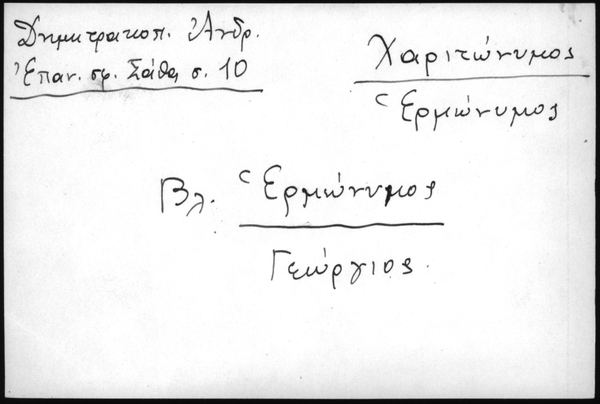 Δημητρακοπ. Ἀνδρ.
Ἐπαν. σφ. Σάθα σ. 10
Χαριτώνυμος
Ἑρμώνυμος
Βλ. Ἑρμώνυμος
Γεώργιος.